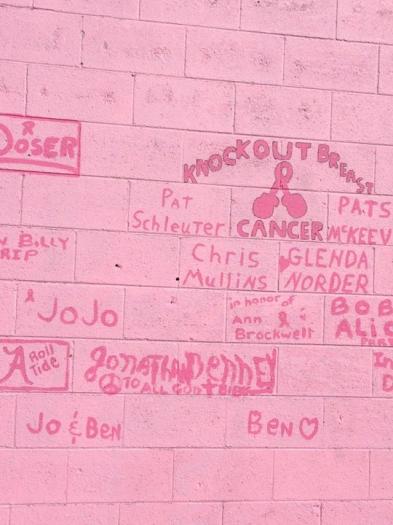 DOSER
KNOCKOUT BREAST
CANCER
Pat
Schleuter
PATS
McKEEV
BILLY
RIP
Chris
Mullins
GLENDA
NORDER
JoJo
in honor of
Ann
Brockwell
BOB
ALIC
A Roll
Tide
Jonathan Denney
TO ALL
Jo & Ben
Ben